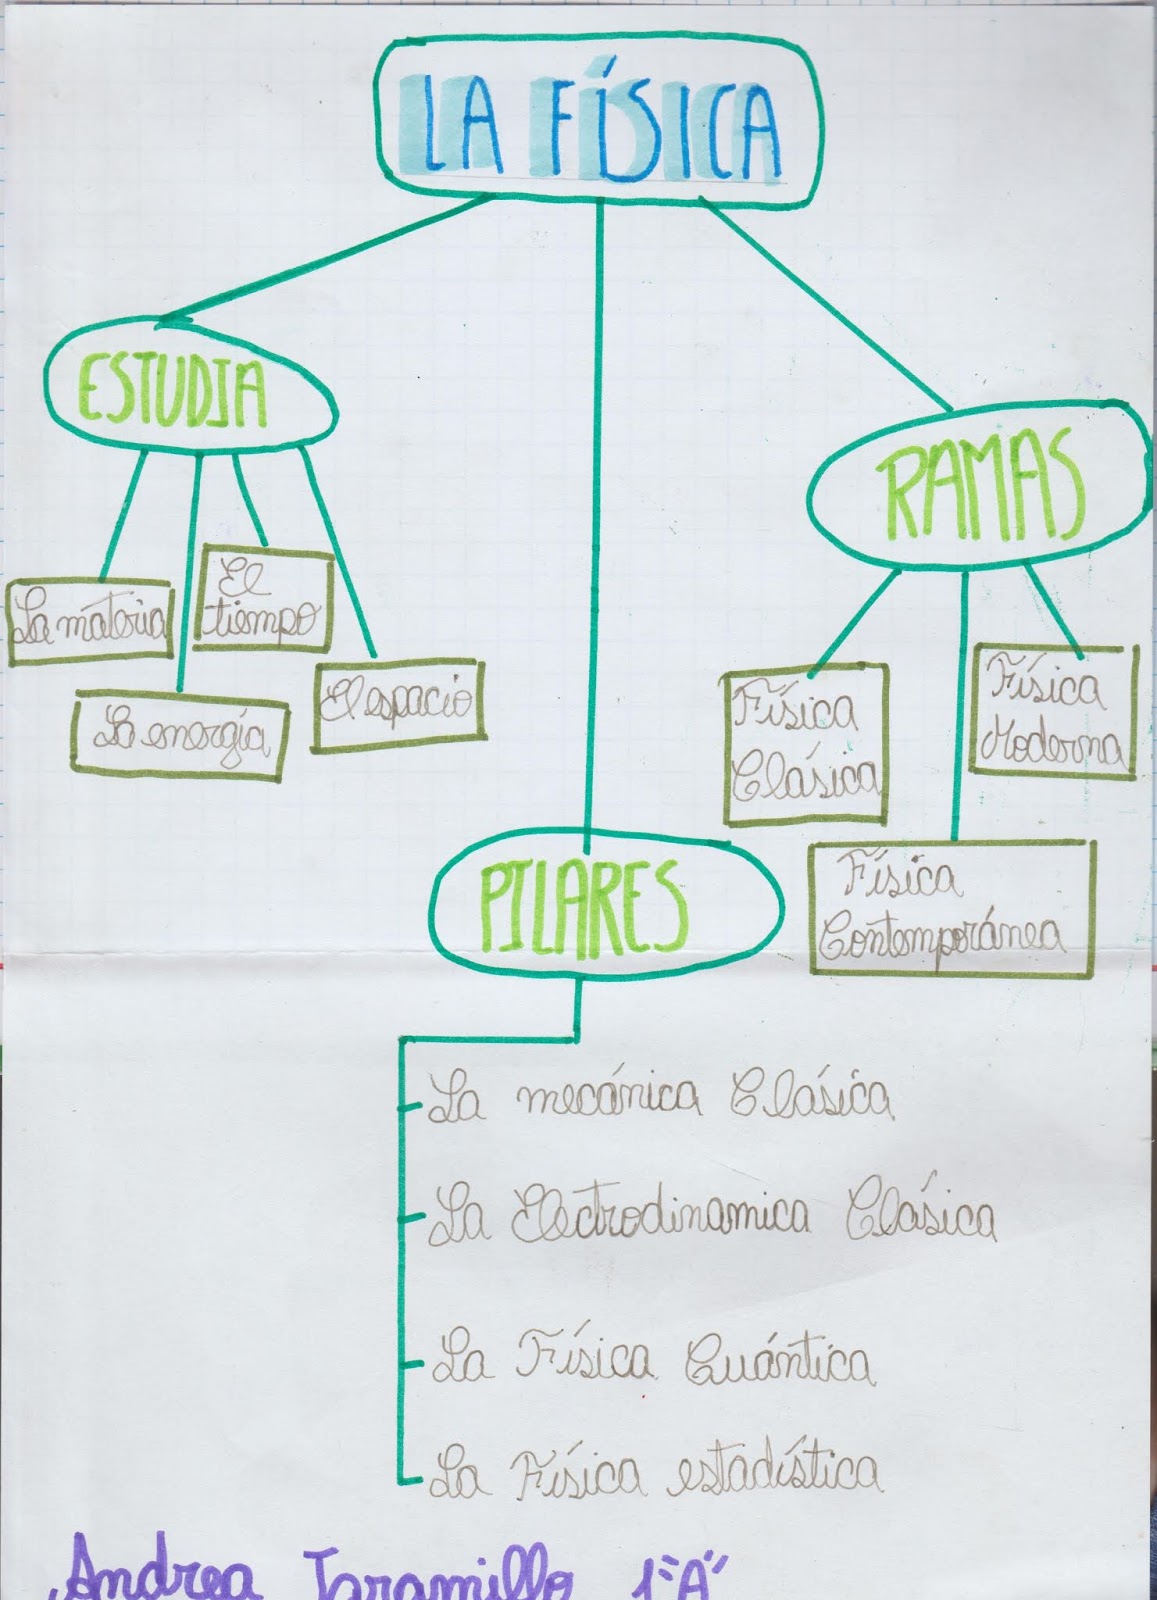 LA FÍSICA
ESTUDIA
La materia
La energía
El
tiempo
El espacio
RAMAS
Física
Clásica
Física
Contemporánea
Física
Moderna
PILARES
La mecánica Clásica
La Electrodinamica Clásica
La Física Cuántica
La Física estadística
Andrea Jaramillo 1º"A"